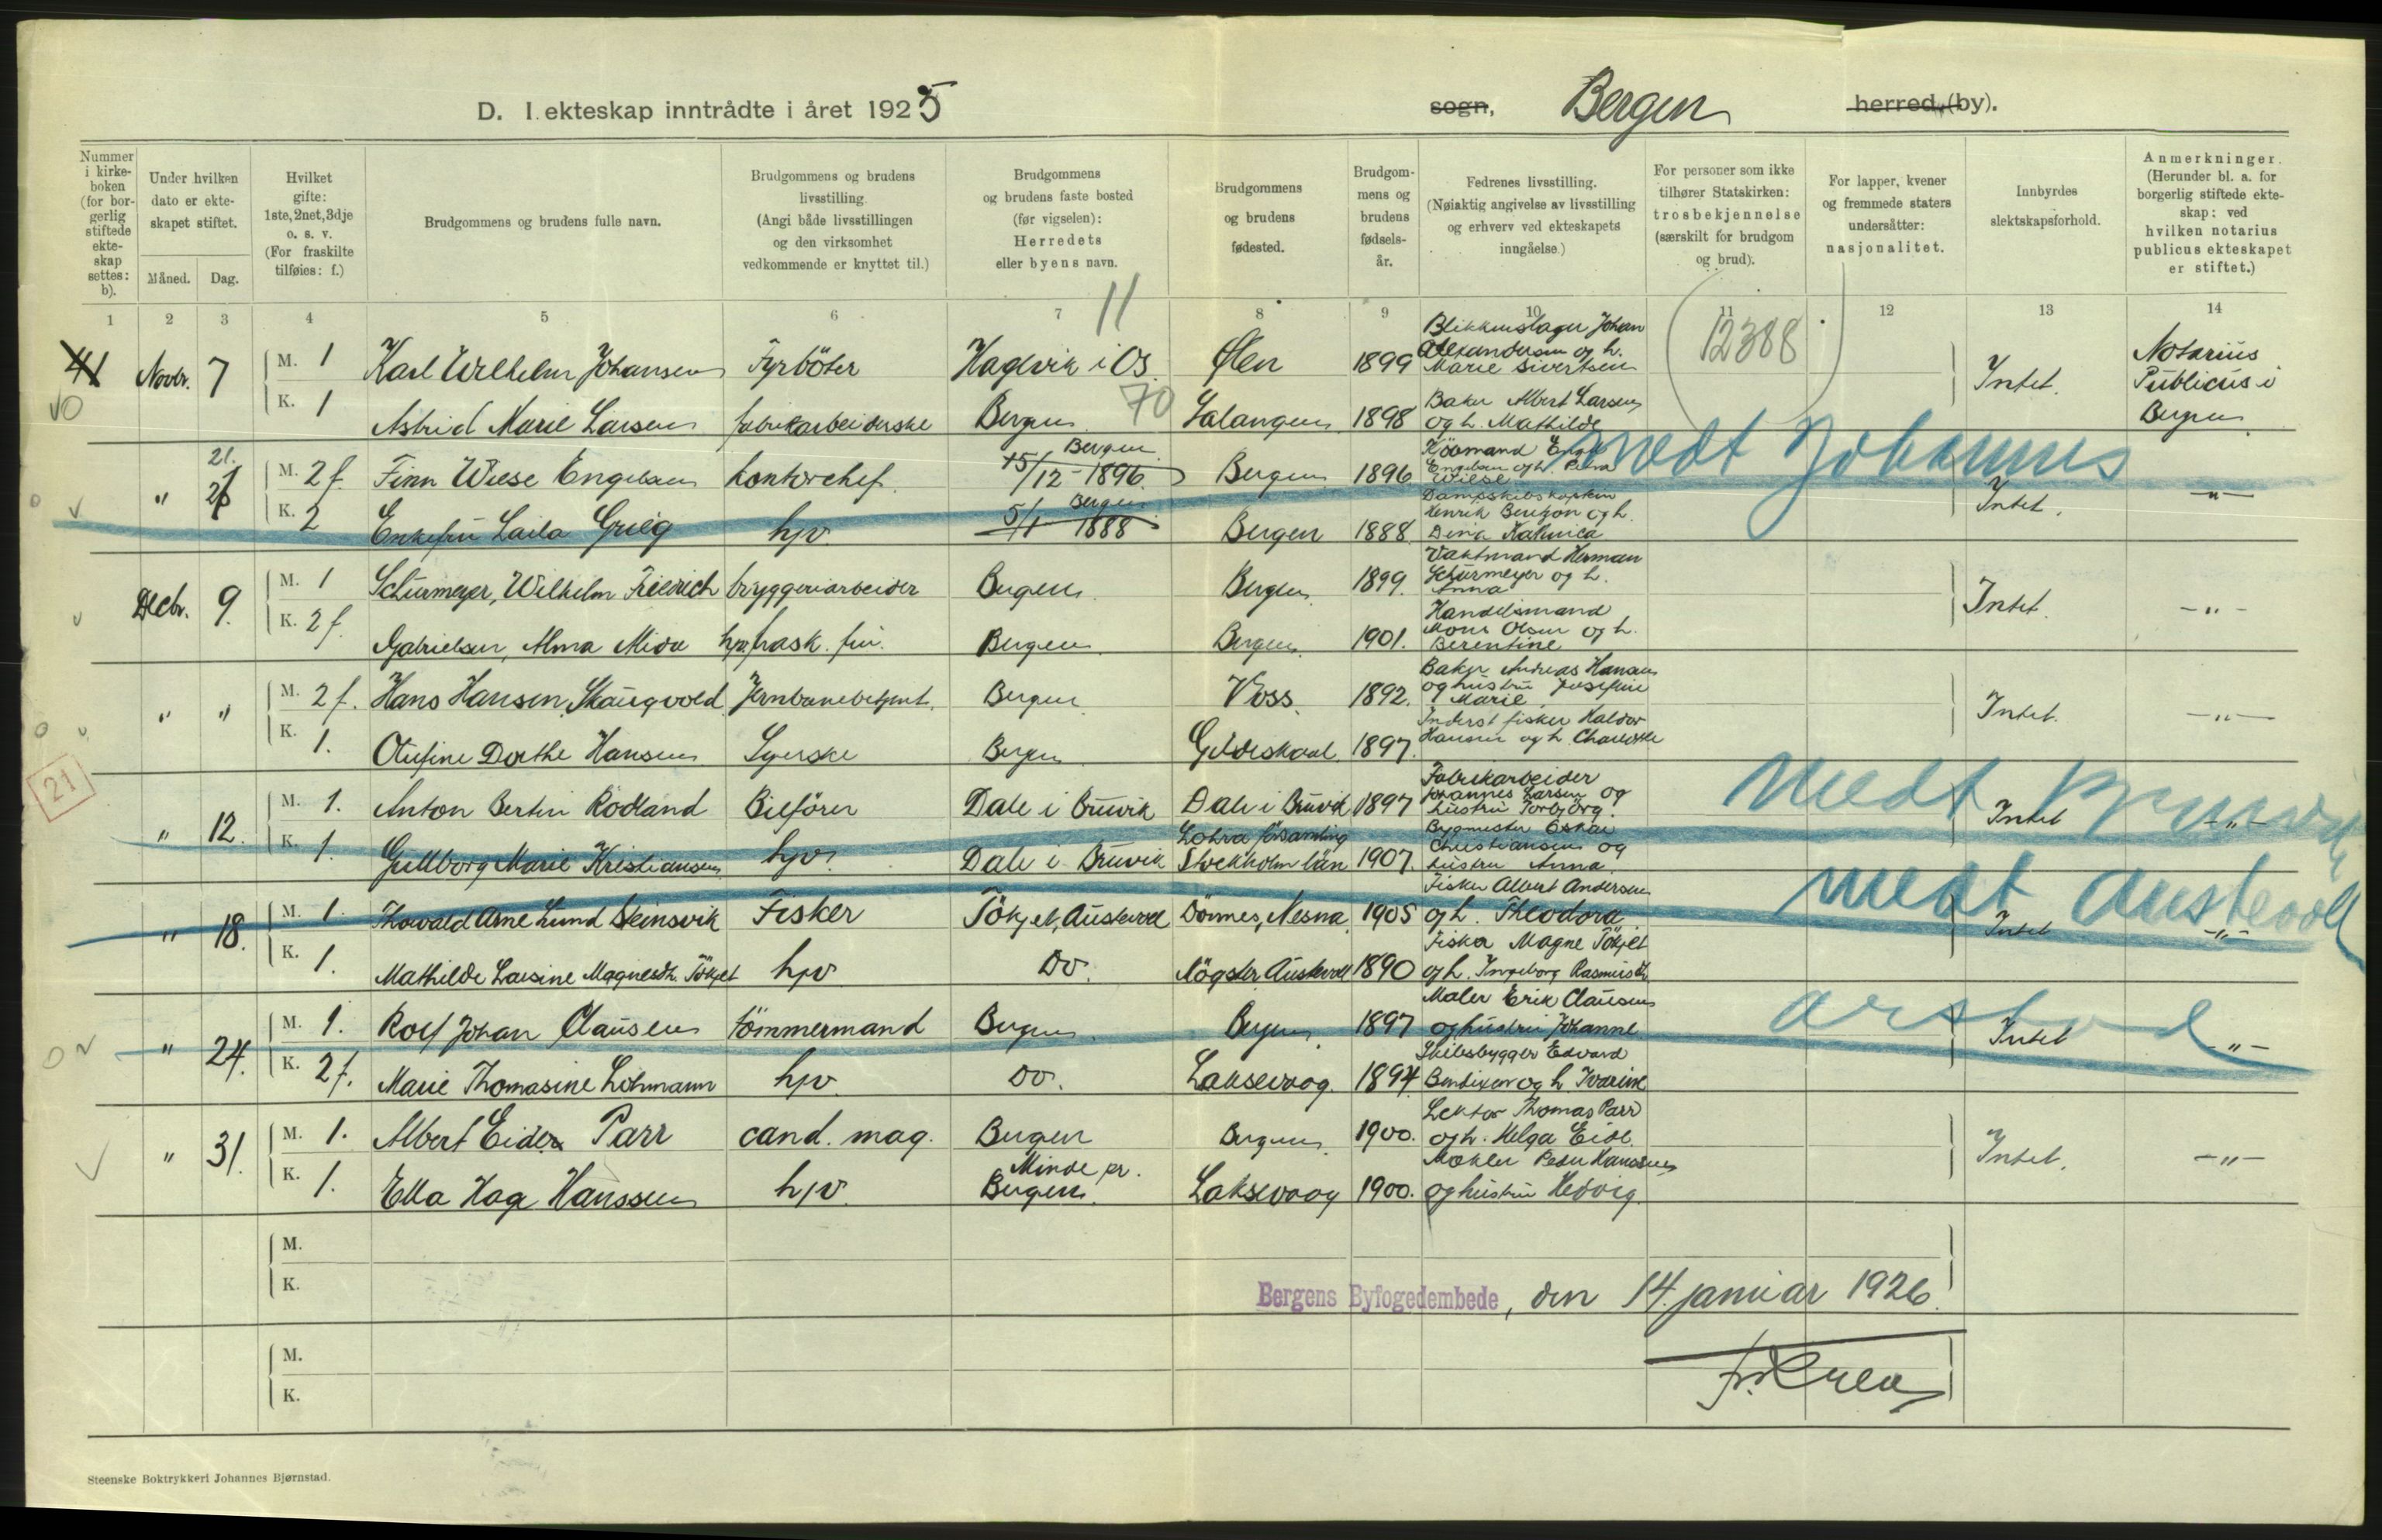 D. I ekteskap inntrådte i året 1925
sogn, Bergen herred (by).
Nummer i kirke-boken (for bor-gerlig stiftede ekte-skap settes: b).
Under hvilken dato er ekte-skapet stiftet.
Måned. Dag.
Hvilket gifte: 1ste, 2net, 3dje o. s. v. (For fraskilte tilføies: f.)
Brudgommens og brudens fulle navn.
Brudgommens og brudens livsstilling (Angi både livsstillingen og den virksomhet vedkommende er knyttet til.)
Brudgommens og brudens faste bosted (før vigselen): Herredets eller byens navn.
Brudgommens og brudens fødested.
Brudgom-mens og brudens fødsels-år.
Fedrenes livsstilling. (Nøiaktig angivelse av livsstilling og erhverv ved ekteskapets inngåelse.)
For personer som ikke tilhører Statskirken: trosbekjennelse (særskilt for brudgom og brud).
For lapper, kvener og fremmede staters undersåtter: nasjonalitet.
Innbyrdes slektskapsforhold.
Anmerkninger. (Herunder bl. a. for borgerlig stiftede ekte-skap: ved hvilken notarius publicus ekteskapet er stiftet.)
11
1 2 3 4 5 6 7 8 9 10 11 12 13 14
12388
41 Novbr. 7 M. 1 Karl Wilhelm Johansen Fyrböter Hagevik i Os Ølen 1899 Blikkenslager Johan Alexandersen og h. Marie Sivertsen Intet. Notarius Publicus i Bergen
10 K. 1 Astrid Marie Larsen fabrikarbeiderske Bergen 70 Salangen 1898 Baker Albert Larsen og h. Mathilde
medt Johannes
" 21. M. 2 f. Finn Wiese Engelsen kontorchef Bergen 15/12-1896 Bergen 1896 Kjöbmand Engel Engelsen og h. Petra Wiese Intet. -"-
K. 2 Enkefru Laila Grieg hjv. Bergen 5/1 1888 Bergen 1888. Dampskibskaptein Henrik Bentzon og h. Dina Kathinca
Decbr. 9. M. 1 Schürmeyer, Wilhelm Friedrich bryggeriarbeider Bergen Bergen 1899. Vaktmand Herman Schürmeyer og h. Anna Intet. -"-
K. 2 f. Gabrielsen, Alma Mida hjv, frask. fru. Bergen Bergen 1901. Handelsmand Mons Olsen og h. Berentine
" " M. 2 f. Hans Hansen Skaugvold Jernbanebetjent. Bergen Voss 1892. Baker Andreas Hansen og hustru Josefine Marie Intet. -"-
K. 1. Olufine Dorthe Hansen Syerske Bergen Gildeskaal 1897. Inderst fisker Haldor Hansen og h. Charlotte
21
medt Bruvik
" 12. M. 1. Anton Bertin Rödland Bilförer Dale i Bruvik Dale i Bruvik 1897 Fabrikarbeider Johannes Larsen og hustru Torbjörg. Intet -"-
K. 1. Gullborg Marie Kristiansen hjv. Dale i Bruvik Stockholm län 1907. Bygmester Oskar Christiansen og hustru Anna.
medt Austevoll
" 18. M. 1. Thorvald Arne Lund Steinsvik Fisker Tökjet, Austevoll Dönnes, Nesna 1905 Fisker Albert Andersen og h. Theodora Intet -"-
K. 1. Mathilde Larsine Magnesdtr. Tökjet hjv Do. Mögster Austevoll 1890 Fisker Magne Tökjet og h. Ingeborg Rasmusdtr
" 24. M. 1. Rolf Johan Clausen tömmermand Bergen Bergen 1897 Maler Erik Clausen og hustru Johanne Intet -"-
K. 2 f. Marie Thomasine Lohmann hjv Do. Laksevaag. 1894 Skibsbygger Edvard Bendixen og h. Ivarine
" 31. M. 1. Albert Eide Parr cand. mag. Bergen Bergen 1900. Lektor Thomas Parr og h. Helga Eide. Intet. -"-
K. 1. Ella Hage Hanssen hjv. Minde pr. Bergen. Laksevaag 1900. Mækler Peder Hanssen og hustru Hedvig.
M.
K.
Bergens Byfogedembede, den 14. januar 1926.
M.
K.
Steenske Boktrykkeri Johannes Bjørnstad.